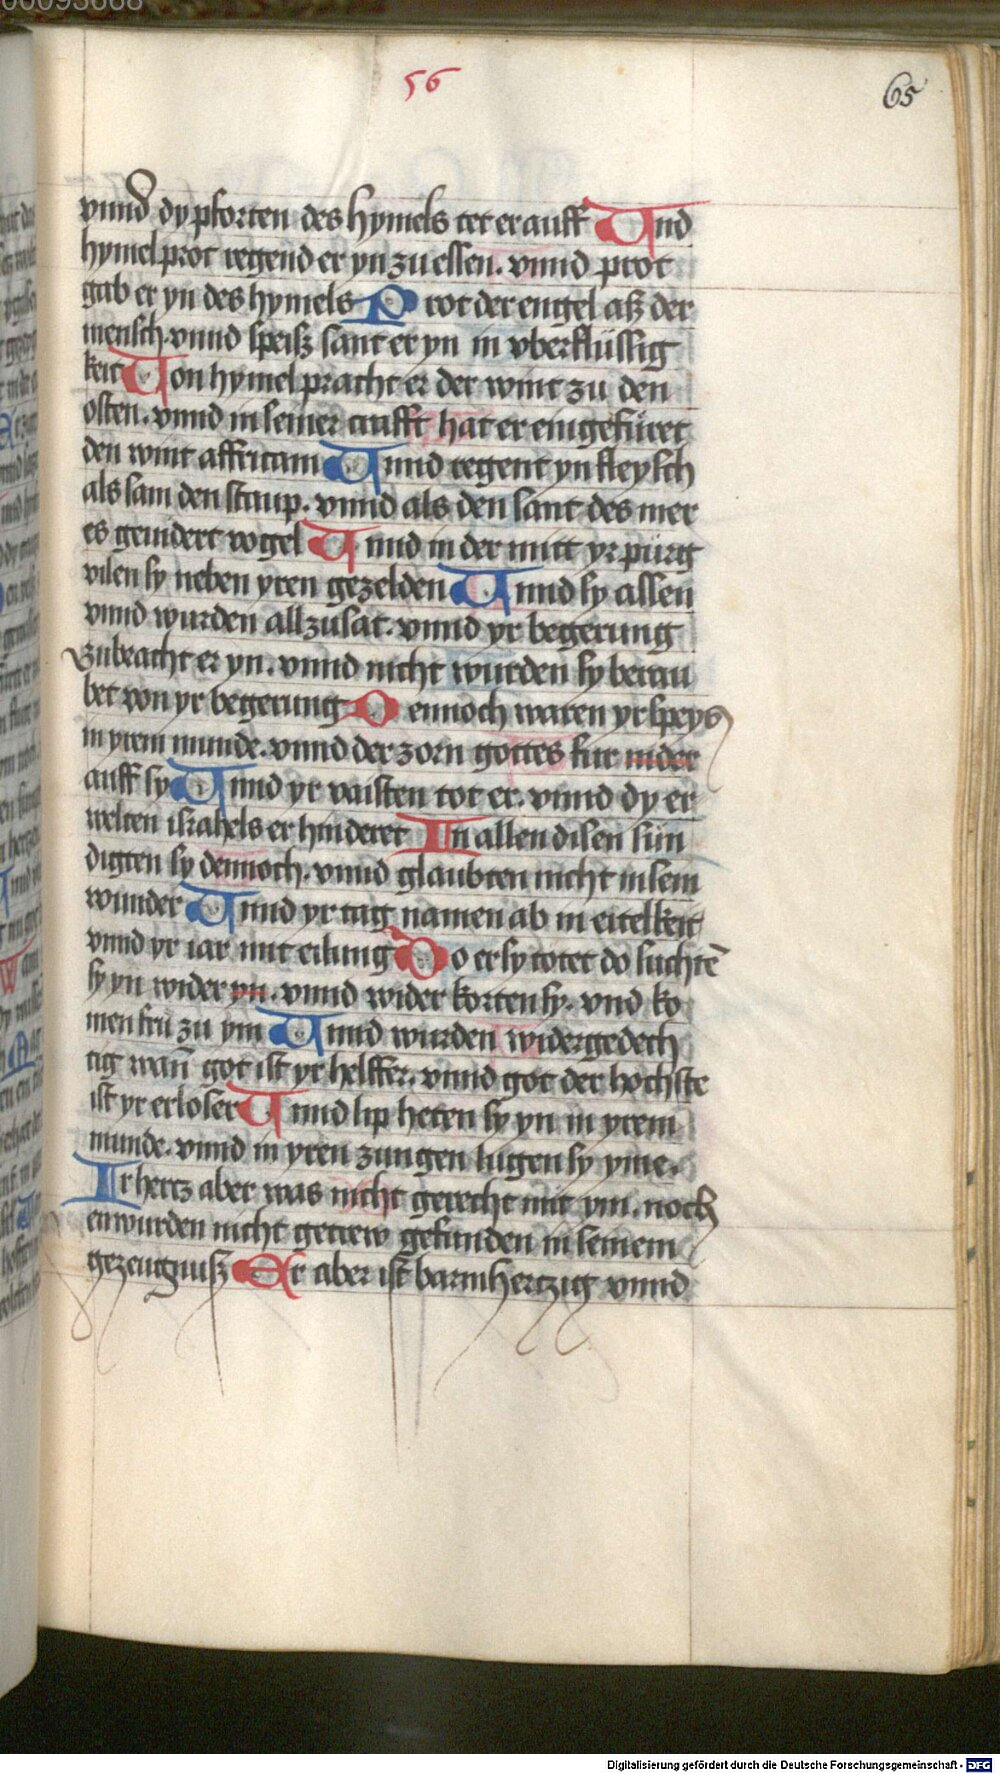 00093668
56
65
vnnd dy pforten des hymels tet er auff Vnd
hymel prot regend er yn zu essen. vnnd prot
gab er yn des hymels Prot der engel aß der
mensch. vnnd speiß sant er yn in vberflüssig
keit Von hymel pracht er der wint zu den
osten. vnnd in seiner crafft hat er eingefüret
den wint affricam Vnnd regent yn fleysch
als sam den staup. vnnd als den sant des mer
es geuidert vogel Vnnd in der mitt yr pürg
vilen sy neben yren gezelden Vnnd sy assen
vnnd wurden all zu sat. vnnd yr begerung
zubracht er yn. vnnd nicht wurden sy berau
bet von yr begerung Dennoch waren yr speys
in yrem munde. vnnd der zorn gottes fur nider
auff sy Vnnd yr vaisten tot er. vnnd dy er
welten israhels er hinderet In allen disen sün
digten sy dennoch. vnnd glaubten nicht in sein
wunder Vnnd yr tag namen ab in eitelkeit
vnnd yr iar mit eilung Do er sy totet do suchtē
sy yn wider yn. vnnd wider korten sy. vnd ko
men fru zu ym Vnnd wurden widergedech
tig wan̄ got ist yr helffer. vnnd got der hochste
ist yr erloser Vnnd lip heten sy yn in yrem
munde. vnnd in yren zungen lugen sy yme.
Ir hertz aber was nicht gerecht mit ym. noch
en wurden nicht getrew gefunden in seinem
gezeugnuß Er aber ist barmhertzig vnnd
Digitalisierung gefördert durch die Deutsche Forschungsgemeinschaft - DFG